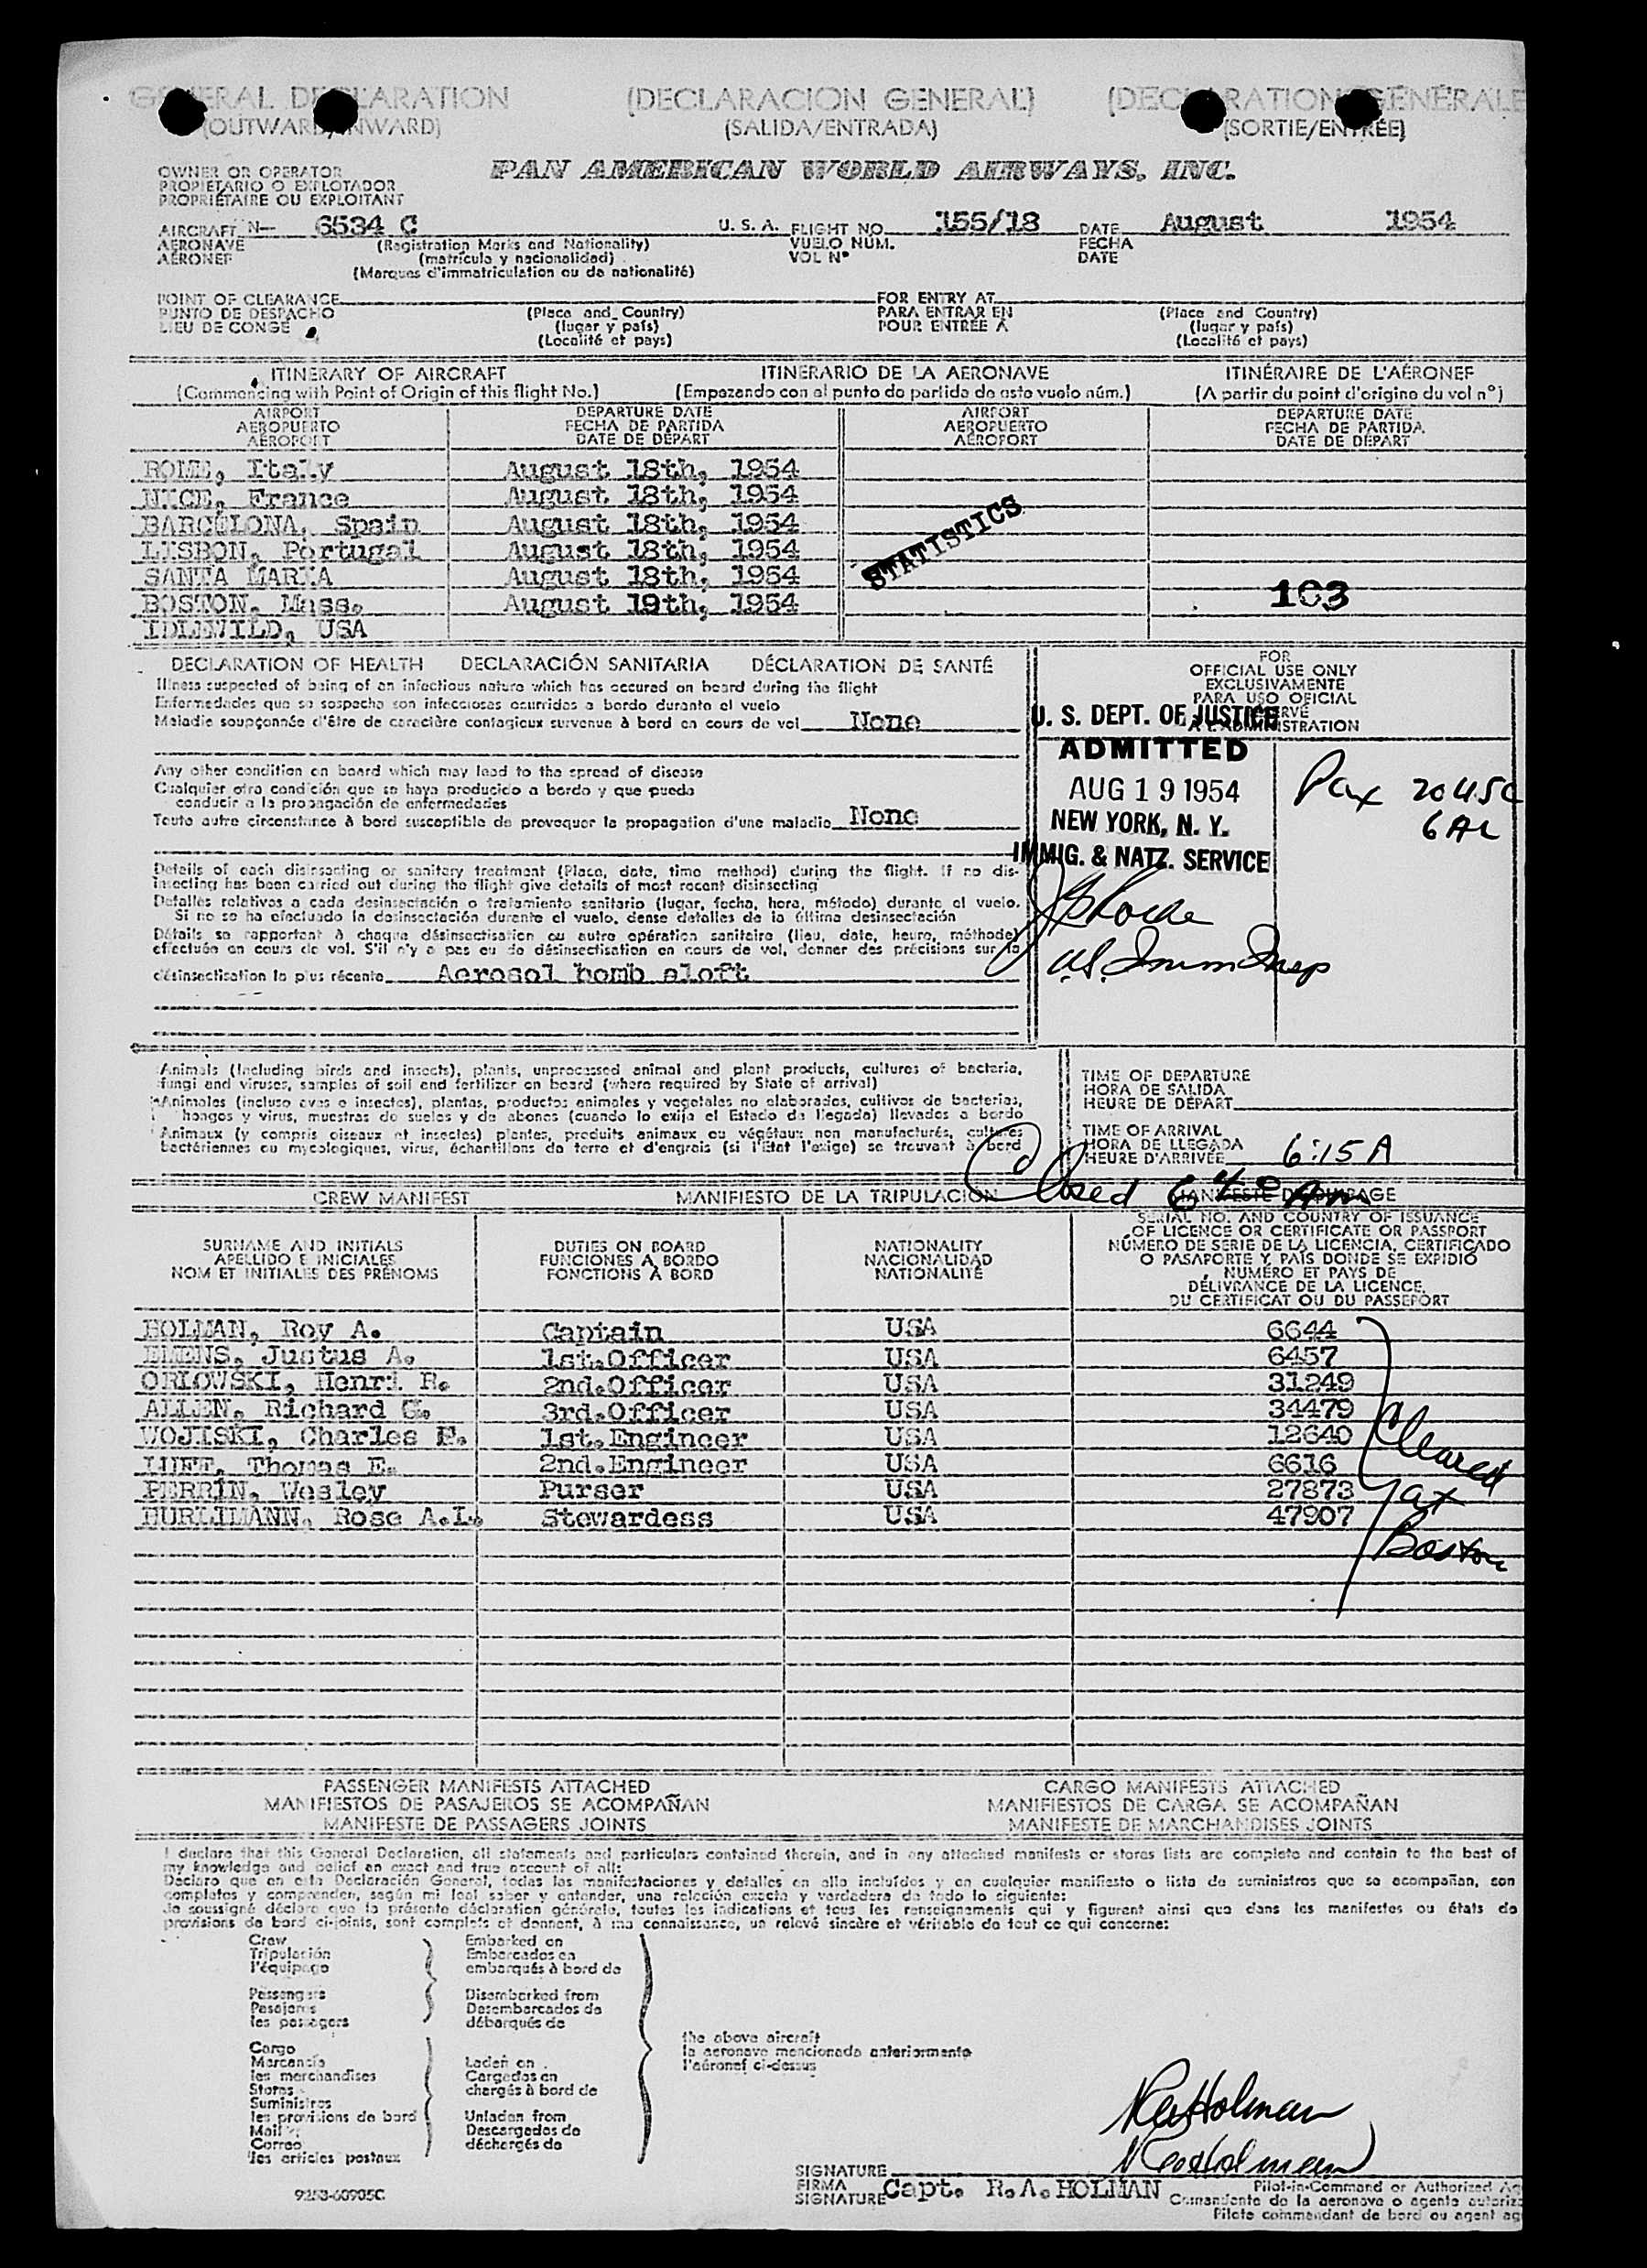 GENERAL DECLARATION (DECLARACION GENERAL) (DECLARATION GÉNÉRALE
(OUTWARD/INWARD) (SALIDA/ENTRADA) (SORTIE/ENTRÉE)
OWNER OR OPERATOR
PROPIETARIO O EXPLOTADOR
PROPRIÉTAIRE OU EXPLOITANT
PAN AMERICAN WORLD AIRWAYS, INC.
AIRCRAFT N- 6534 C U. S. A. FLIGHT NO. 155/18 DATE August 1954
AERONAVE (Registration Marks and Nationality) VUELO NÚM. FECHA
AÉRONEF (matrícula y nacionalidad) VOL Nº DATE
(Marques d'immatriculation ou de nationalité)
POINT OF CLEARANCE FOR ENTRY AT
PUNTO DE DESPACHO (Place and Country) PARA ENTRAR EN (Place and Country)
LIEU DE CONGÉ (lugar y país) POUR ENTRÉE À (lugar y país)
(Localité et pays) (Localité et pays)
ITINERARY OF AIRCRAFT ITINERARIO DE LA AERONAVE ITINÉRAIRE DE L'AÉRONEF
(Commencing with Point of Origin of this flight No.) (Empezando con el punto de partida de este vuelo núm.) (A partir du point d'origine du vol nº)
AIRPORT DEPARTURE DATE AIRPORT DEPARTURE DATE
AEROPUERTO FECHA DE PARTIDA AEROPUERTO FECHA DE PARTIDA
AÉROPORT DATE DE DÉPART AÉROPORT DATE DE DÉPART
ROME, Italy August 18th, 1954
NICE, France August 18th, 1954
BARCELONA, Spain August 18th, 1954
LISBON, Portugal August 18th, 1954
SANTA MARIA August 18th, 1954
BOSTON, Mass. August 19th, 1954
IDLEWILD, USA
STATISTICS
103
DECLARATION OF HEALTH DECLARACIÓN SANITARIA DÉCLARATION DE SANTÉ
Illness suspected of being of an infectious nature which has occured on board during the flight
Enfermedades que se sospecha son infecciosas ocurridas a bordo durante el vuelo
Maladie soupçonnée d'être de caractère contagieux survenue à bord en cours de vol None
Any other condition on board which may lead to the spread of disease
Cualquier otra condición que se haya producido a bordo y que pueda
conducir a la propagación de enfermedades
Toute autre circonstance à bord susceptible de provoquer la propagation d'une maladie None
Details of each disinsecting or sanitary treatment (Place, date, time method) during the flight. If no dis-
insecting has been carried out during the flight give details of most recent disinsecting
Detalles relativos a cada desinsectación o tratamiento sanitario (lugar, fecha, hora, método) durante el vuelo.
Si no se ha efectuado la desinsectación durante el vuelo, dense detalles de la última desinsectación
Détails se rapportant à chaque désinsectisation ou autre opération sanitaire (lieu, date, heure, méthode)
effectuée en cours de vol. S'il n'y a pas eu de désinsectisation en cours de vol, donner des précisions sur la
désinsectisation la plus récente Aerosol bomb aloft
FOR
OFFICIAL USE ONLY
EXCLUSIVAMENTE
PARA USO OFICIAL
RÉSERVÉ
À L'ADMINISTRATION
U. S. DEPT. OF JUSTICE
ADMITTED
AUG 19 1954
NEW YORK, N. Y.
IMMIG. & NATZ. SERVICE
U.S. Imm Insp
Pax 20 USC
6 AL
Animals (Including birds and insects), plants, unprocessed animal and plant products, cultures of bacteria,
fungi and viruses, samples of soil and fertilizer on board (where required by State of arrival)
Animales (incluso aves e insectos), plantas, productos animales y vegetales no elaborados, cultivos de bacterias,
hongos y virus, muestras de suelos y de abonos (cuando lo exija el Estado de llegada) llevados a bordo
Animaux (y compris oiseaux et insectes) plantes, produits animaux ou végétaux non manufacturés, cultures
bactériennes ou mycologiques, virus, échantillons de terre et d'engrais (si l'Etat l'exige) se trouvant à bord
TIME OF DEPARTURE
HORA DE SALIDA
HEURE DE DÉPART
TIME OF ARRIVAL
HORA DE LLEGADA
HEURE D'ARRIVÉE 6:15 A
Closed 6 40 Am
CREW MANIFEST MANIFIESTO DE LA TRIPULACION MANIFESTE D'ÉQUIPAGE
SURNAME AND INITIALS DUTIES ON BOARD NATIONALITY SERIAL NO. AND COUNTRY OF ISSUANCE
APELLIDO E INICIALES FUNCIONES A BORDO NACIONALIDAD OF LICENCE OR CERTIFICATE OR PASSPORT
NOM ET INITIALES DES PRÉNOMS FONCTIONS À BORD NATIONALITÉ NÚMERO DE SERIE DE LA LICENCIA, CERTIFICADO
O PASAPORTE Y PAÍS DONDE SE EXPIDIÓ
NUMÉRO ET PAYS DE
DÉLIVRANCE DE LA LICENCE,
DU CERTIFICAT OU DU PASSEPORT
HOLMAN, Roy A. Captain USA 6644
EMENS, Justus A. 1st.Officer USA 6457
ORLOWSKI, Henri R. 2nd.Officer USA 31249
ALLEN, Richard G. 3rd.Officer USA 34479
WOJISKI, Charles F. 1st.Engineer USA 12640
LUFT, Thomas E. 2nd.Engineer USA 6616
PERRIN, Wesley Purser USA 27873
HURLIMANN, Rose A.L. Stewardess USA 47907
Cleared
at
Boston
PASSENGER MANIFESTS ATTACHED CARGO MANIFESTS ATTACHED
MANIFIESTOS DE PASAJEROS SE ACOMPAÑAN MANIFIESTOS DE CARGA SE ACOMPAÑAN
MANIFESTE DE PASSAGERS JOINTS MANIFESTE DE MARCHANDISES JOINTS
I declare that this General Declaration, all statements and particulars contained therein, and in any attached manifests or stores lists are complete and contain to the best of
my knowledge and belief an exact and true account of all:
Declaro que en esta Declaración General, todas las manifestaciones y detalles en ella incluídos y en cualquier manifiesto o lista de suministros que se acompañan, son
completos y comprenden, según mi leal saber y entender, una relación exacta y verdadera de todo lo siguiente:
Je soussigné déclare que la présente déclaration générale, toutes les indications et tous les renseignements qui y figurent ainsi que dans les manifestes ou états de
provisions de bord ci-joints, sont complets et donnent, à ma connaissance, un relevé sincère et véritable de tout ce qui concerne:
Crew Embarked on
Tripulación Embarcados en
l'équipage embarqués à bord de
Passengers Disembarked from
Pasajeros Desembarcados de
les passagers débarqués de
the above aircraft
la aeronave mencionada anteriormente
l'aéronef ci-dessus
Cargo
Mercancía Laden on
les merchandises Cargados en
Stores chargés à bord de
Suministros
les provisions de bord Unladen from
Mail Descargados de
Correo déchargés de
les articles postaux
SIGNATURE
FIRMA
SIGNATURE Capt. R.A. HOLMAN
Pilot-in-Command or Authorized Ag
Comandante de la aeronave o agente autoriz
Pilote commandant de bord ou agent ag
9253-60905C